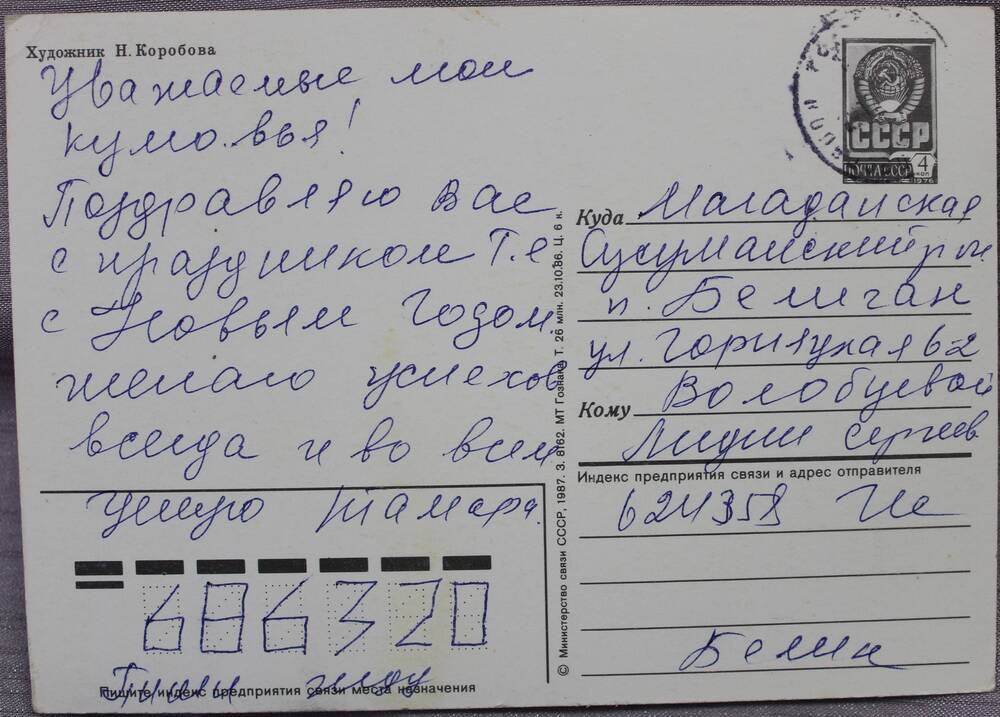 Художник Н. Коробова
Уважаемые мои
кумовья!
Поздравляю Вас
с праздником т.е
с Новым Годом.
желаю успехов
всегда и во всем
целую Тамара.
686320
Пиши жду
Пишите индекс предприятия связи места назначения
© Министерство связи СССР, 1987. З. 8162. МТ Гознака. Т. 26 млн. 23.10.86. Ц. 6 к.
СССР
ПОЧТА СССР
4 коп
1976
Куда Магаданская
Сусуманский р он
п. Белиган
ул. Горняцкая 6-2
Кому Волобуевой
Лидии Сергеев
Индекс предприятия связи и адрес отправителя
624358
Белик